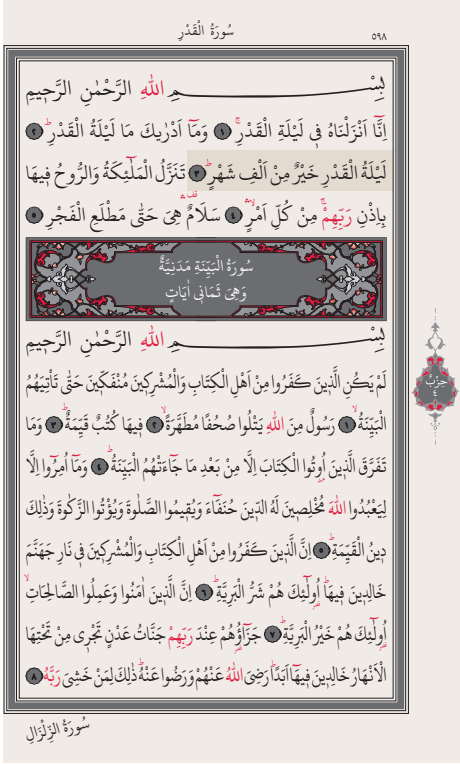 سُورَةُ الْقَدْرِ
٥٩٨
بِسْمِ اللّٰهِ الرَّحْمٰنِ الرَّحٖيمِ
اِنَّٓا اَنْزَلْنَاهُ فٖى لَيْلَةِ الْقَدْرِۚ ﴿١﴾ وَمَٓا اَدْرٰيكَ مَا لَيْلَةُ الْقَدْرِؕ ﴿٢﴾
لَيْلَةُ الْقَدْرِ خَيْرٌ مِنْ اَلْفِ شَهْرٍؕ ﴿٣﴾ تَنَزَّلُ الْمَلٰٓئِكَةُ وَالرُّوحُ فٖيهَا
بِاِذْنِ رَبِّهِمْۚ مِنْ كُلِّ اَمْرٍۙۛ ﴿٤﴾ سَلَامٌ۠ۛ هِىَ حَتّٰى مَطْلَعِ الْفَجْرِ ﴿٥﴾
سُورَةُ الْبَيِّنَةِ مَدَنِيَّةٌ
وَهِىَ ثَمَانٖى اٰيَاتٍ
بِسْمِ اللّٰهِ الرَّحْمٰنِ الرَّحٖيمِ
لَمْ يَكُنِ الَّذٖينَ كَفَرُوا مِنْ اَهْلِ الْكِتَابِ وَالْمُشْرِكٖينَ مُنْفَكّٖينَ حَتّٰى تَأْتِيَهُمُ
الْبَيِّنَةُۙ ﴿١﴾ رَسُولٌ مِنَ اللّٰهِ يَتْلُوا صُحُفًا مُطَهَّرَةًۙ ﴿٢﴾ فٖيهَا كُتُبٌ قَيِّمَةٌؕ ﴿٣﴾ وَمَا
تَفَرَّقَ الَّذٖينَ اُو۫تُوا الْكِتَابَ اِلَّا مِنْ بَعْدِ مَا جَٓاءَتْهُمُ الْبَيِّنَةُؕ ﴿٤﴾ وَمَٓا اُمِرُٓوا اِلَّا
لِيَعْبُدُوا اللّٰهَ مُخْلِصٖينَ لَهُ الدّٖينَ حُنَفَٓاءَ وَيُقٖيمُوا الصَّلٰوةَ وَيُؤْتُوا الزَّكٰوةَ وَذٰلِكَ
دٖينُ الْقَيِّمَةِؕ ﴿٥﴾ اِنَّ الَّذٖينَ كَفَرُوا مِنْ اَهْلِ الْكِتَابِ وَالْمُشْرِكٖينَ فٖى نَارِ جَهَنَّمَ
خَالِدٖينَ فٖيهَاؕ اُو۬لٰٓئِكَ هُمْ شَرُّ الْبَرِيَّةِؕ ﴿٦﴾ اِنَّ الَّذٖينَ اٰمَنُوا وَعَمِلُوا الصَّالِحَاتِۙ
اُو۬لٰٓئِكَ هُمْ خَيْرُ الْبَرِيَّةِؕ ﴿٧﴾ جَزَٓاؤُهُمْ عِنْدَ رَبِّهِمْ جَنَّاتُ عَدْنٍ تَجْرٖى مِنْ تَحْتِهَا
الْاَنْهَارُ خَالِدٖينَ فٖيهَٓا اَبَدًاؕ رَضِىَ اللّٰهُ عَنْهُمْ وَرَضُوا عَنْهُؕ ذٰلِكَ لِمَنْ خَشِىَ رَبَّهُ ﴿٨﴾
حِزْبُ
٤
سُورَةُ الزِّلْزَالِ